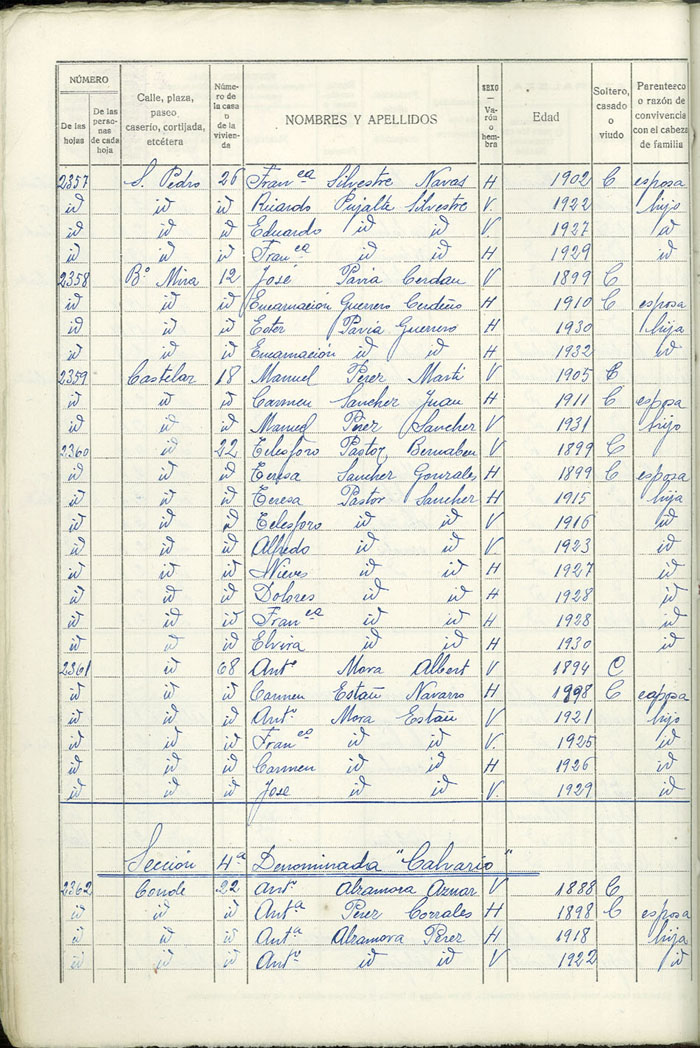 NÚMERO
De las hojas
De las personas de cada hoja
Calle, plaza, paseo, caserío, cortijada, etcétera
Número de la casa o de la vivienda
NOMBRES Y APELLIDOS
SEXO — Varón o hembra
Edad
Soltero, casado o viudo
Parentesco o razón de convivencia con el cabeza de familia
2357 S. Pedro 26 Franca Silvestre Navas H 1902 C esposa
id id id Ricardo Pujalte Silvestre V. 1922 hijo
id id id Eduardo id id V 1927 id
id id id Franca id id H 1929 id
2358 Bº Mira 12 José Pavia Cerdan V 1899 C
id id id Encarnación Guerrero Cerdeño H 1910 C esposa
id id id Ester Pavia Guerrero H 1930 hija
id id id Encarnación id id H 1932 id
2359 Castelar 18 Manuel Pérez Martí V 1905 C
id id id Carmen Sanchez Juan H 1911 C esposa
id id id Manuel Pérez Sanchez V 1931 hijo
2360 id 22 Telesforo Pastor Bernabeu V 1899 C
id id id Teresa Sanchez Gonzales H 1899 C esposa
id id id Teresa Pastor Sanchez H 1915 hija
id id id Telesforo id id V 1916 id
id id id Alfredo id id V. 1923 id
id id id Nieves id id H 1927 id
id id id Dolores id id H 1928 id
id id id Franca id id H 1928 id
id id id Elvira id id H 1930 id
2361 id 68 Antº Mora Albert V 1894 C
id id id Carmen Estañ Navarro H 1898 C
id id id Antº Mora Estañ V 1921 hijo
id id id Franco id id V. 1925 id
id id id Carmen id id H 1926 id
id id id José id id V. 1929 id
Sección 4ª Denominada "Calvario"
2362 Conde 22 Antº Alzamora Aznar V 1888 C
id id id Antª Pérez Corrales H 1898 C esposa
id id id Antª Alzamora Pérez H 1918 hija
id id id Antº id id V 1922 id